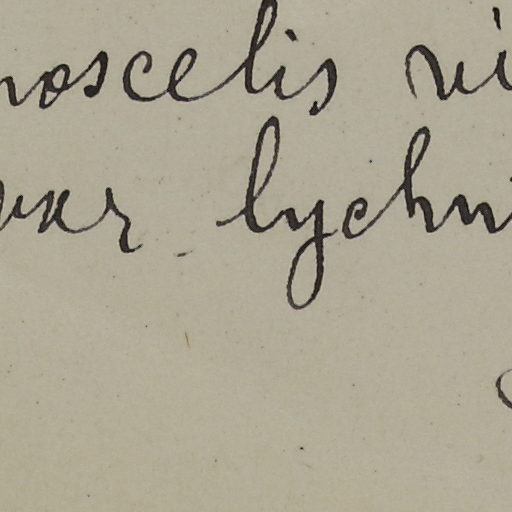 noscelis vi
var. lychni